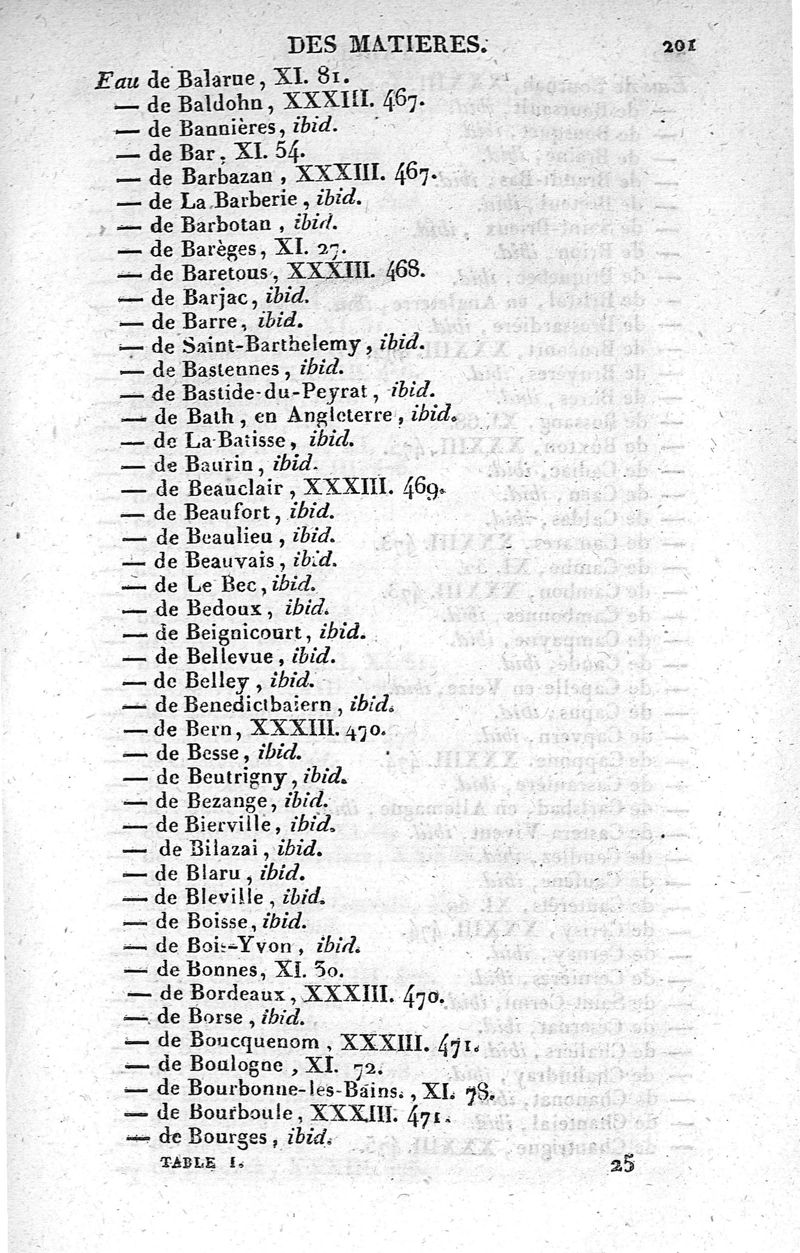 DES MATIERES. 201
Eau de Balarne, XI. 81.
— de Baldohn, XXXIII. 467.
— de Bannières, ibid.
— de Bar, XI. 54.
— de Barbazan, XXXIII. 467.
— de La Barberie, ibid.
— de Barbotan, ibid.
— de Barèges, XI. 27.
— de Baretous, XXXIII. 468.
— de Barjac, ibid.
— de Barre, ibid.
— de Saint-Barthelemy, ibid.
— de Bastennes, ibid.
— de Bastide-du-Peyrat, ibid.
— de Bath, en Angleterre, ibid.
— de La Batisse, ibid.
— de Baurin, ibid.
— de Beauclair, XXXIII. 469.
— de Beaufort, ibid.
— de Beaulieu, ibid.
— de Beauvais, ibid.
— de Le Bec, ibid.
— de Bedoux, ibid.
— de Beignicourt, ibid.
— de Bellevue, ibid.
— de Belley, ibid.
— de Benedictbaiern, ibid.
— de Bern, XXXIII. 470.
— de Besse, ibid.
— de Beutrigny, ibid.
— de Bezange, ibid.
— de Bierville, ibid.
— de Bilazai, ibid.
— de Blaru, ibid.
— de Bleville, ibid.
— de Boisse, ibid.
— de Bois-Yvon, ibid.
— de Bonnes, XI. 30.
— de Bordeaux, XXXIII. 470.
— de Borse, ibid.
— de Boucquenom, XXXIII. 471.
— de Boulogne, XI. 72.
— de Bourbonne-les-Bains., XI. 78.
— de Bourboule, XXXIII. 471.
— de Bourges, ibid.
TABLE I. 25